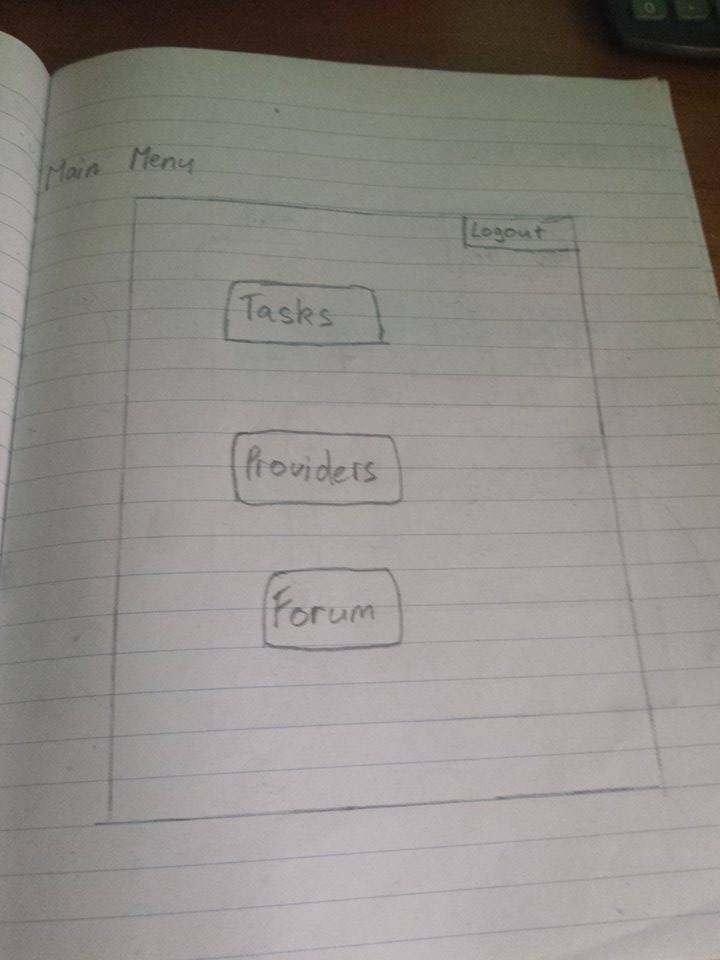 Main Menu
Logout
Tasks
Providers
Forum